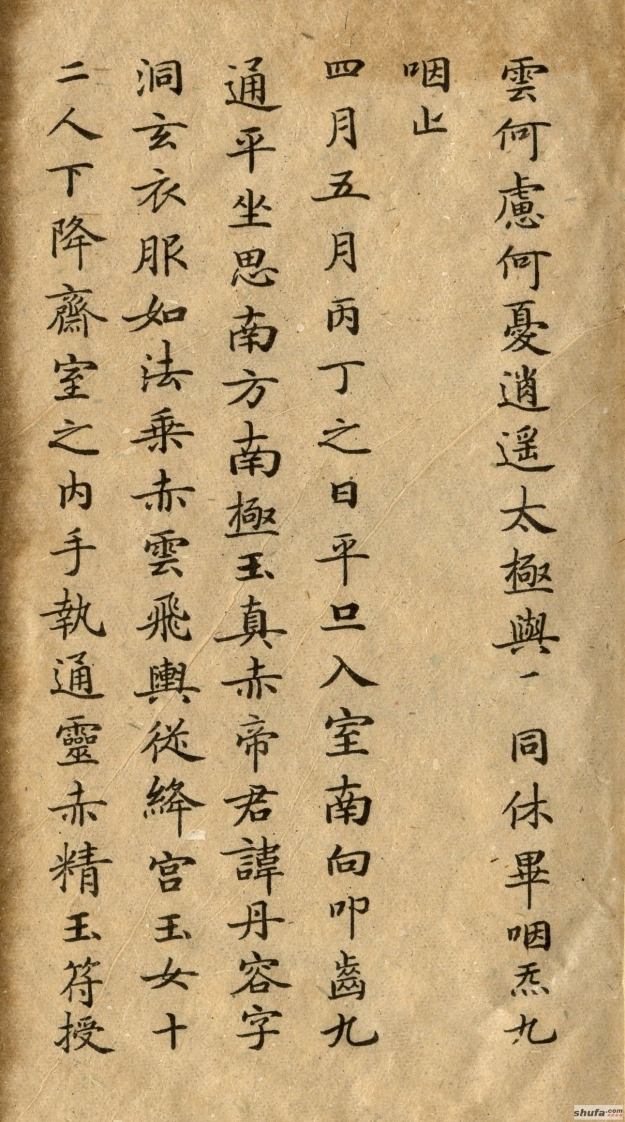 雲何慮何憂逍遥太極與一同休畢咽炁九
咽止
四月五月丙丁之日平旦入室南向叩齒九
通平坐思南方南極玉真赤帝君諱丹容字
洞玄衣服如法乗赤雲飛輿従絳宫玉女十
二人下降齋室之内手執通靈赤精玉符授
shufa.com